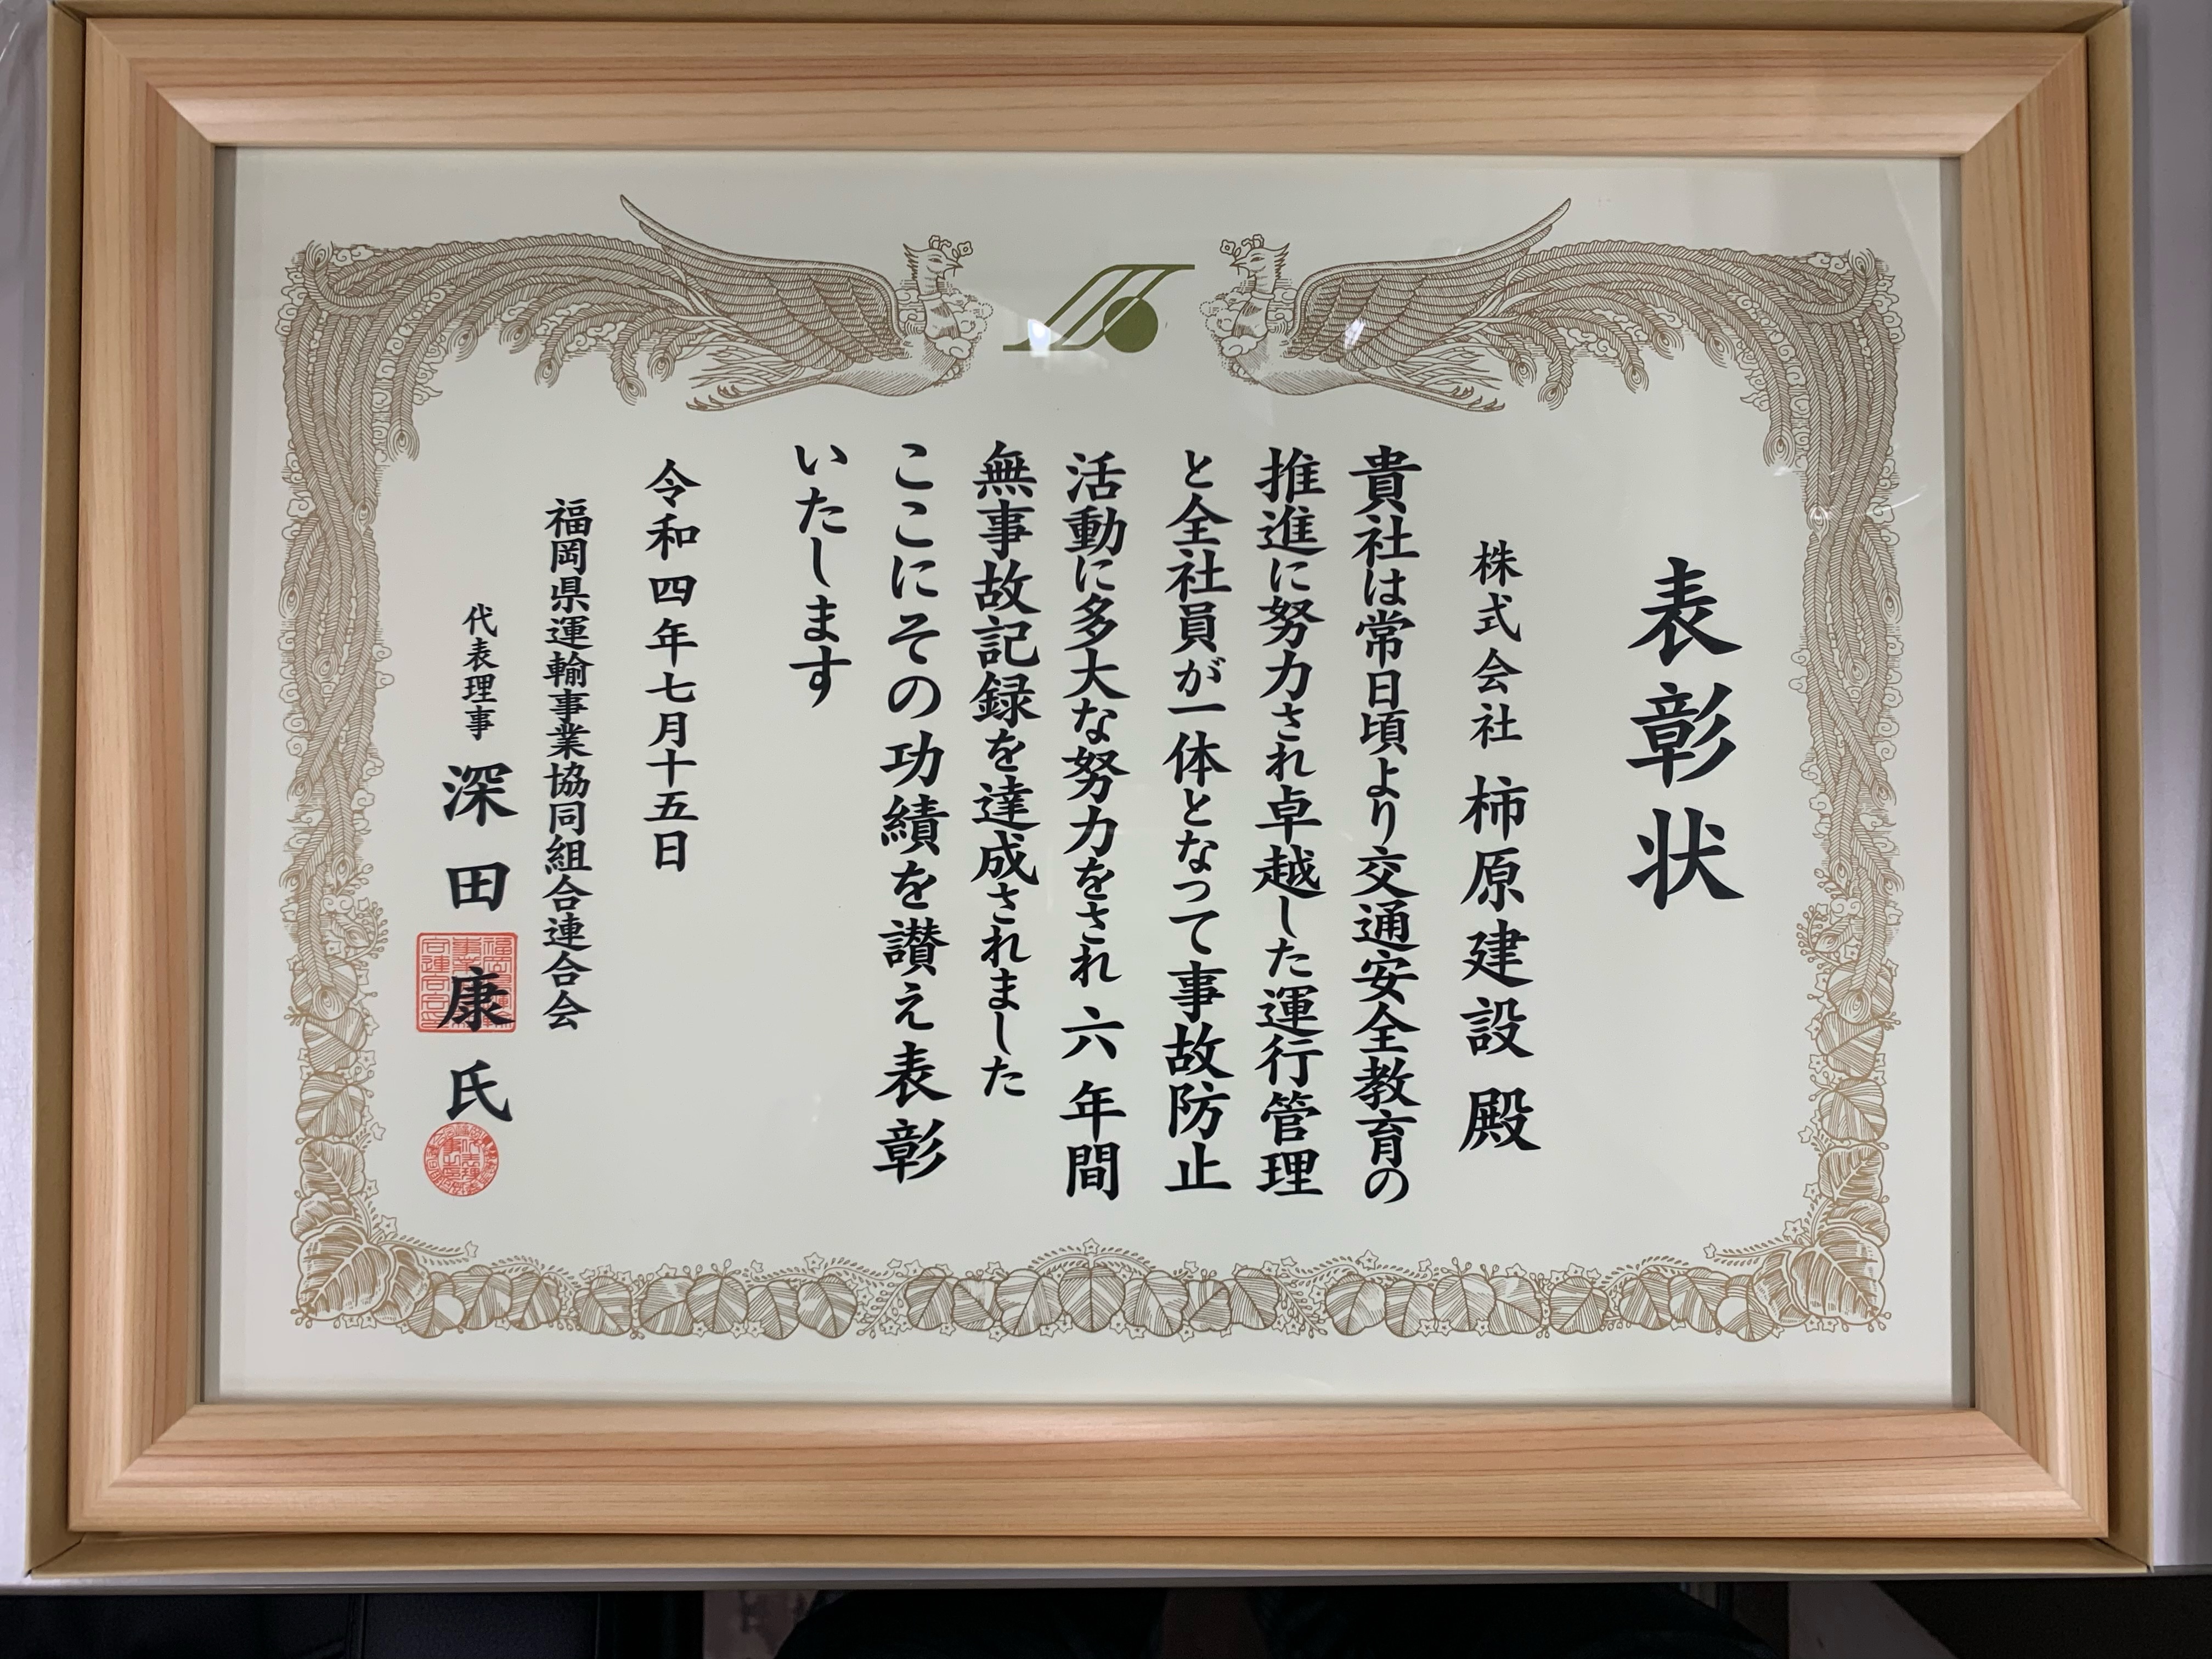 表彰状
株式会社 柿原建設 殿
貴社は常日頃より交通安全教育の
推進に努力され卓越した運行管理
と全社員が一体となって事故防止
活動に多大な努力をされ 六 年間
無事故記録を達成されました
ここにその功績を讃え表彰
いたします
令和四年七月十五日
福岡県運輸事業協同組合連合会
代表理事 深田康氏